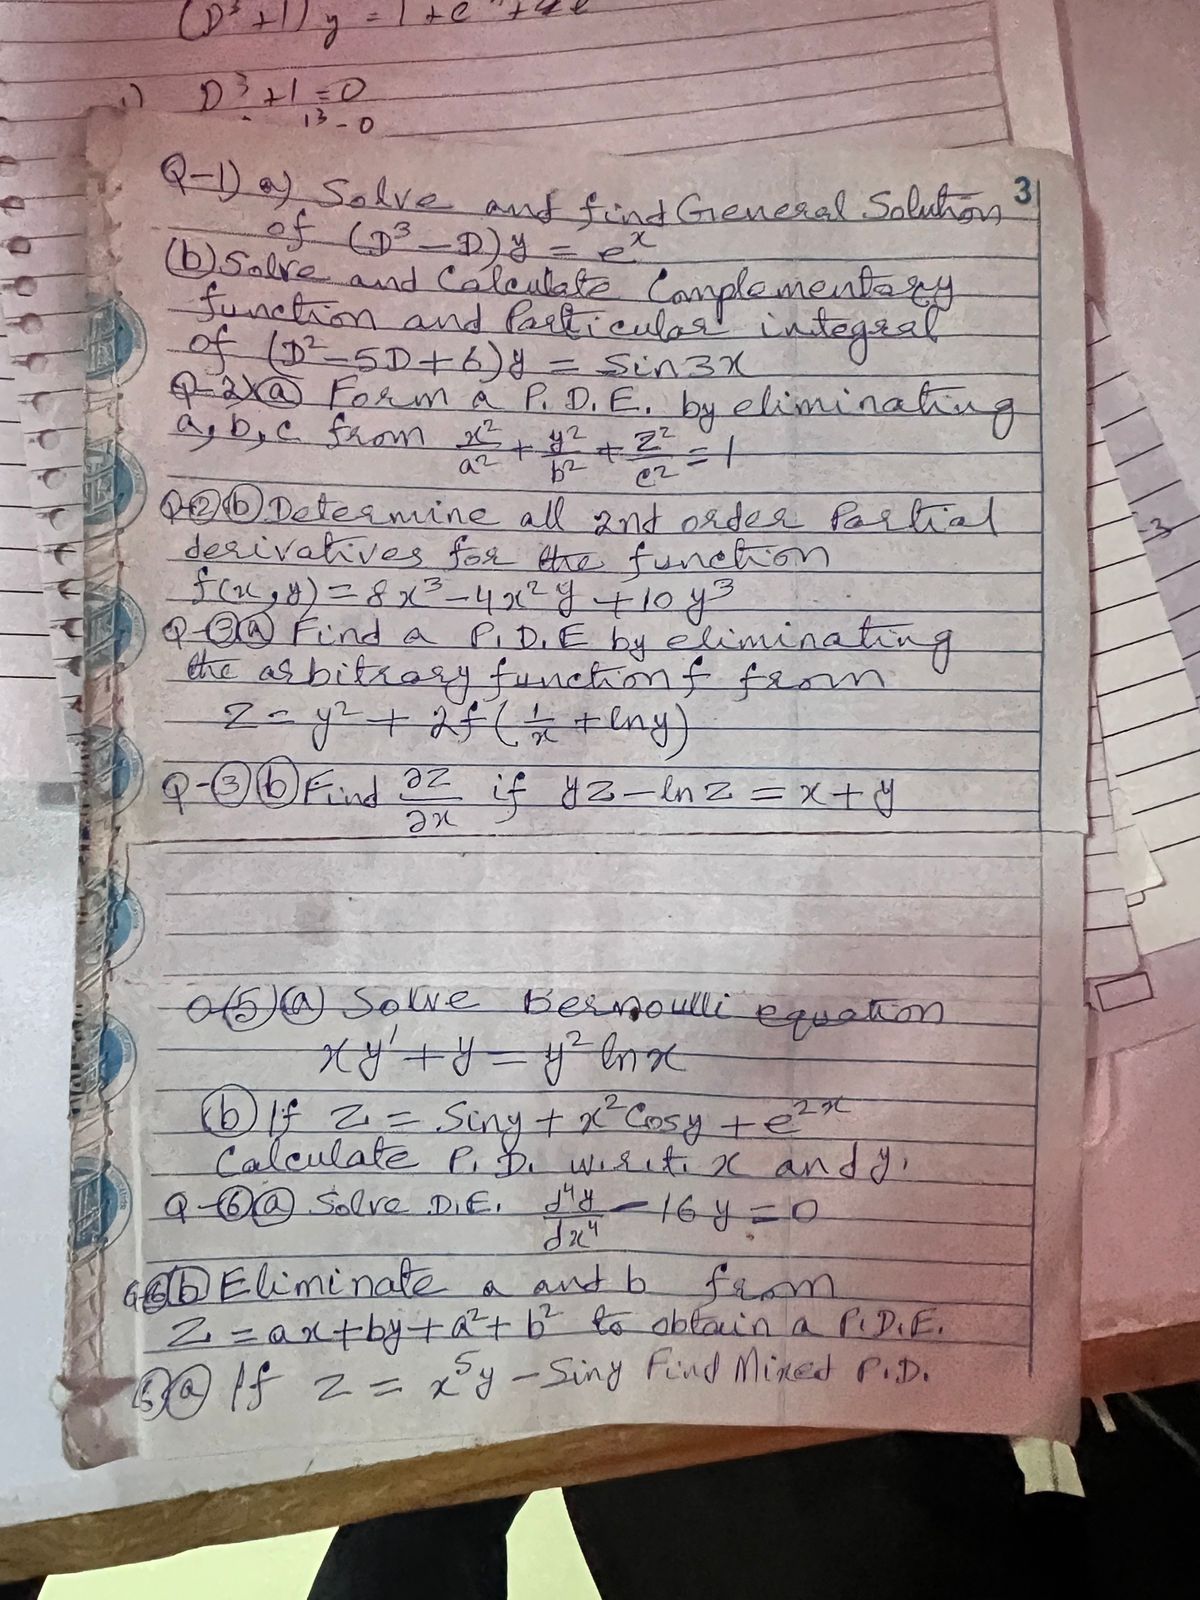 (D³+1)y = 1+e
1) D³+1=0
1³-0
3
Q-1) a) Solve and find General Solution
of (D³-D)y = eˣ
(b) Solve and Calculate Complementary
function and Particular integral
of (D²-5D+6)y = Sin3x
Q-2)(a) Form a P.D.E. by eliminating
a, b, c from x²/a² + y²/b² + z²/c² = 1
Q-(2)(b) Determine all 2nd order Partial
derivatives for the function
f(x,y) = 8x³-4x²y+10y³
Q-(3)(a) Find a P.D.E by eliminating
the arbitrary function f from
z = y² + 2f(1/x + lny)
Q-(3)(b) Find ∂z/∂x if yz-lnz = x+y
Q(5)(a) Solve Bernoulli equation
xy' + y = y² lnx
(b) If z = Siny + x²Cosy + e²ˣ
Calculate P.D. w.r.t. x and y.
Q-(6)(a) Solve D.E. d⁴y/dx⁴ - 16y = 0
(b) Eliminate a and b from
z = ax+by+a²+b² to obtain a P.D.E.
(a) If z = x⁵y - Siny Find Mixed P.D.